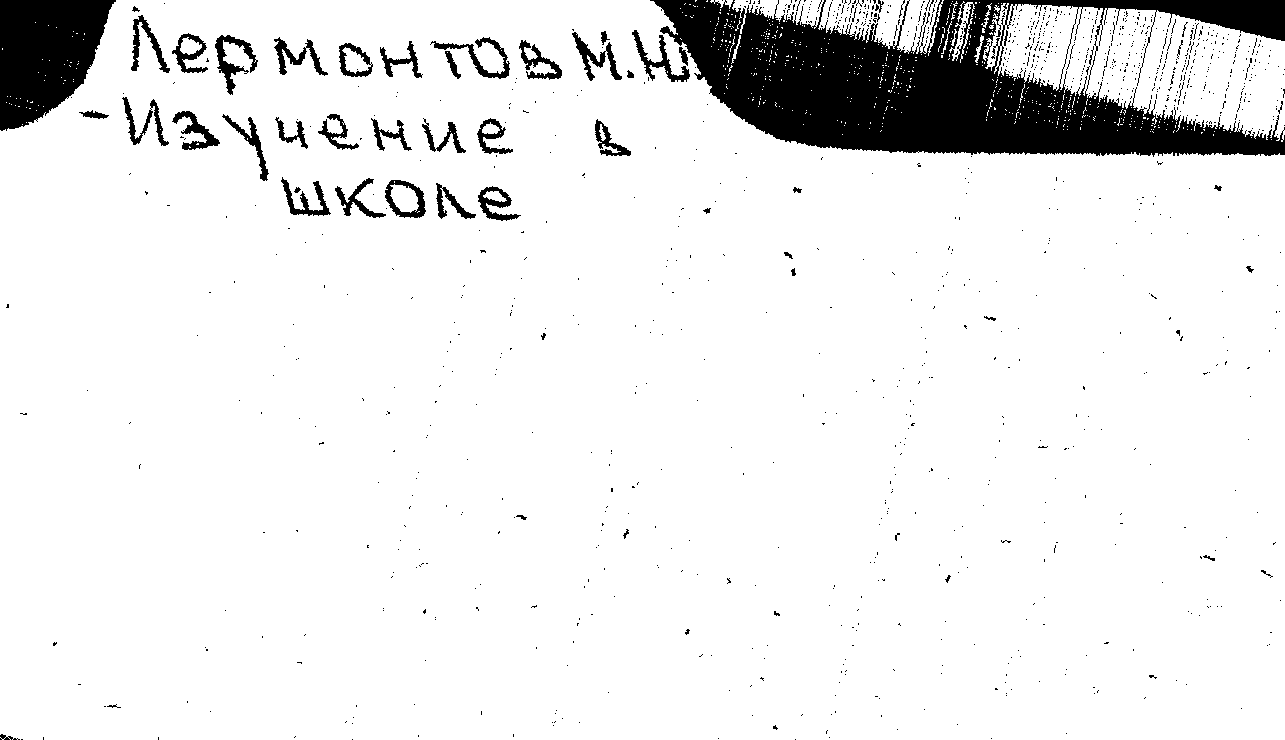 Лермонтов М.Ю.
- Изучение в
школе